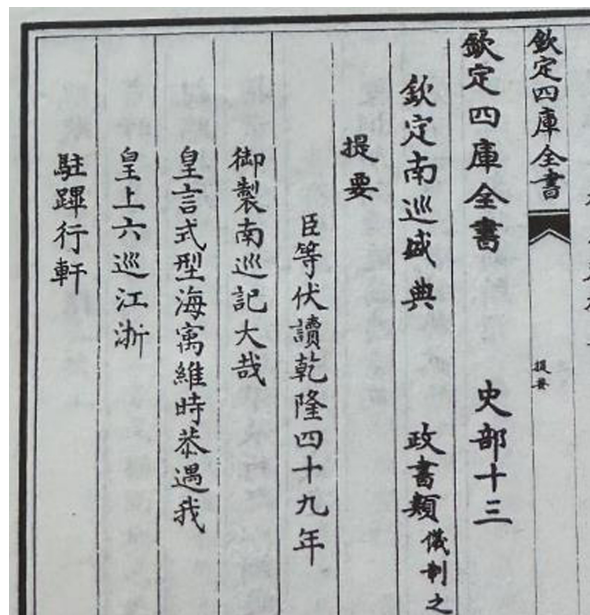 欽定四庫全書
提要
欽定四庫全書 史部十三
欽定南巡盛典 政書類 儀制之
提要
臣等伏讀乾隆四十九年
御製南巡記大哉
皇言式型海寓維時恭遇我
皇上六巡江浙
駐蹕行軒